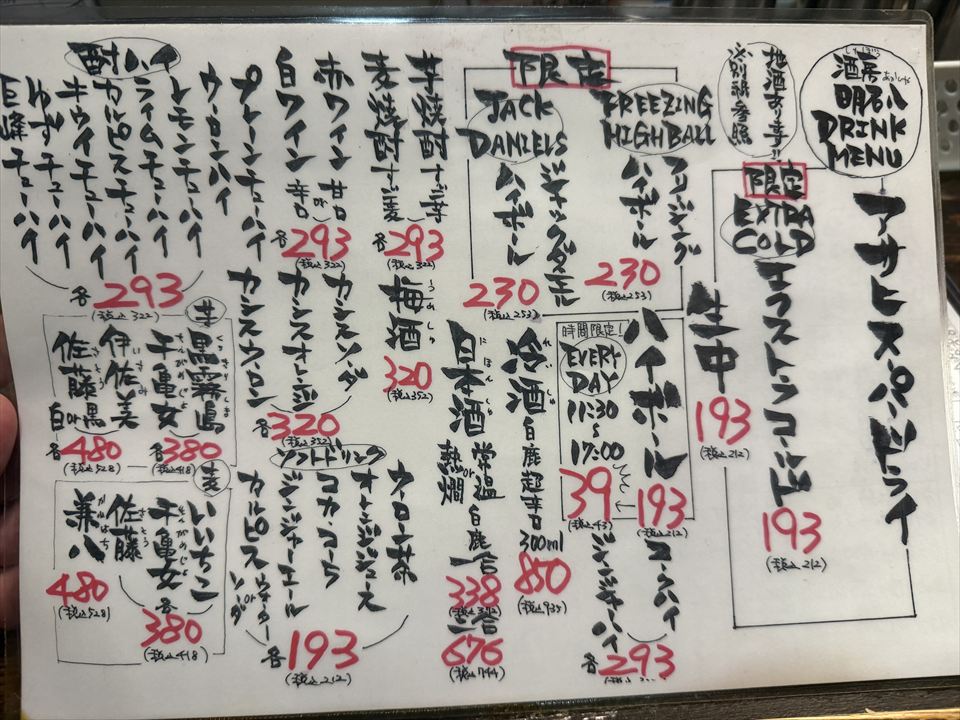 酒房
しゅぼう
明石八
あかしや
DRINK
MENU
アサヒスーパードライ
限定
EXTRA
COLD
エクストラコールド
193
(税込212)
生中
193
(税込212)
地酒あります!!
※別紙参照
限定
FREEZING
HIGHBALL
フリージング
ハイボール
230
(税込253)
JACK
DANIEL'S
ジャックダニエル
ハイボール
230
(税込253)
ハイボール
193
(税込212)
時間限定!
EVERY
DAY
11:30
〜
17:00
39
(税込43)
コークハイ
ジンジャーハイ
各293
冷酒 白鹿超辛口
300ml
850
(税込935)
日本酒
にほんしゅ
常温
or
熱燗
白鹿
一合
338
(税込372)
二合
676
(税込744)
芋焼酎
麦焼酎
各293
(税込322)
梅酒
うめしゅ
320
(税込352)
赤ワイン 甘口
or
白ワイン 辛口
各293
(税込322)
カシスソーダ
カシスオレンジ
カシスウーロン
各320
(税込352)
ソフトドリンク
ウーロン茶
オレンジジュース
コカ・コーラ
ジンジャーエール
カルピス ウォーター
or
ソーダ
各193
(税込212)
酎ハイ
プレーンチューハイ
ウーロンハイ
レモンチューハイ
ライムチューハイ
カルピスチューハイ
キウイチューハイ
ゆずチューハイ
巨峰チューハイ
各293
(税込322)
芋
黒霧島
くろきりしま
千亀女
せんがめじょ
各380
(税込418)
伊佐美
いさみ
佐藤 黒
さとう
or
白
各480
(税込528)
麦
いいちこ
千亀女
せんがめじょ
各380
(税込418)
佐藤
さとう
兼八
かねはち
480
(税込528)